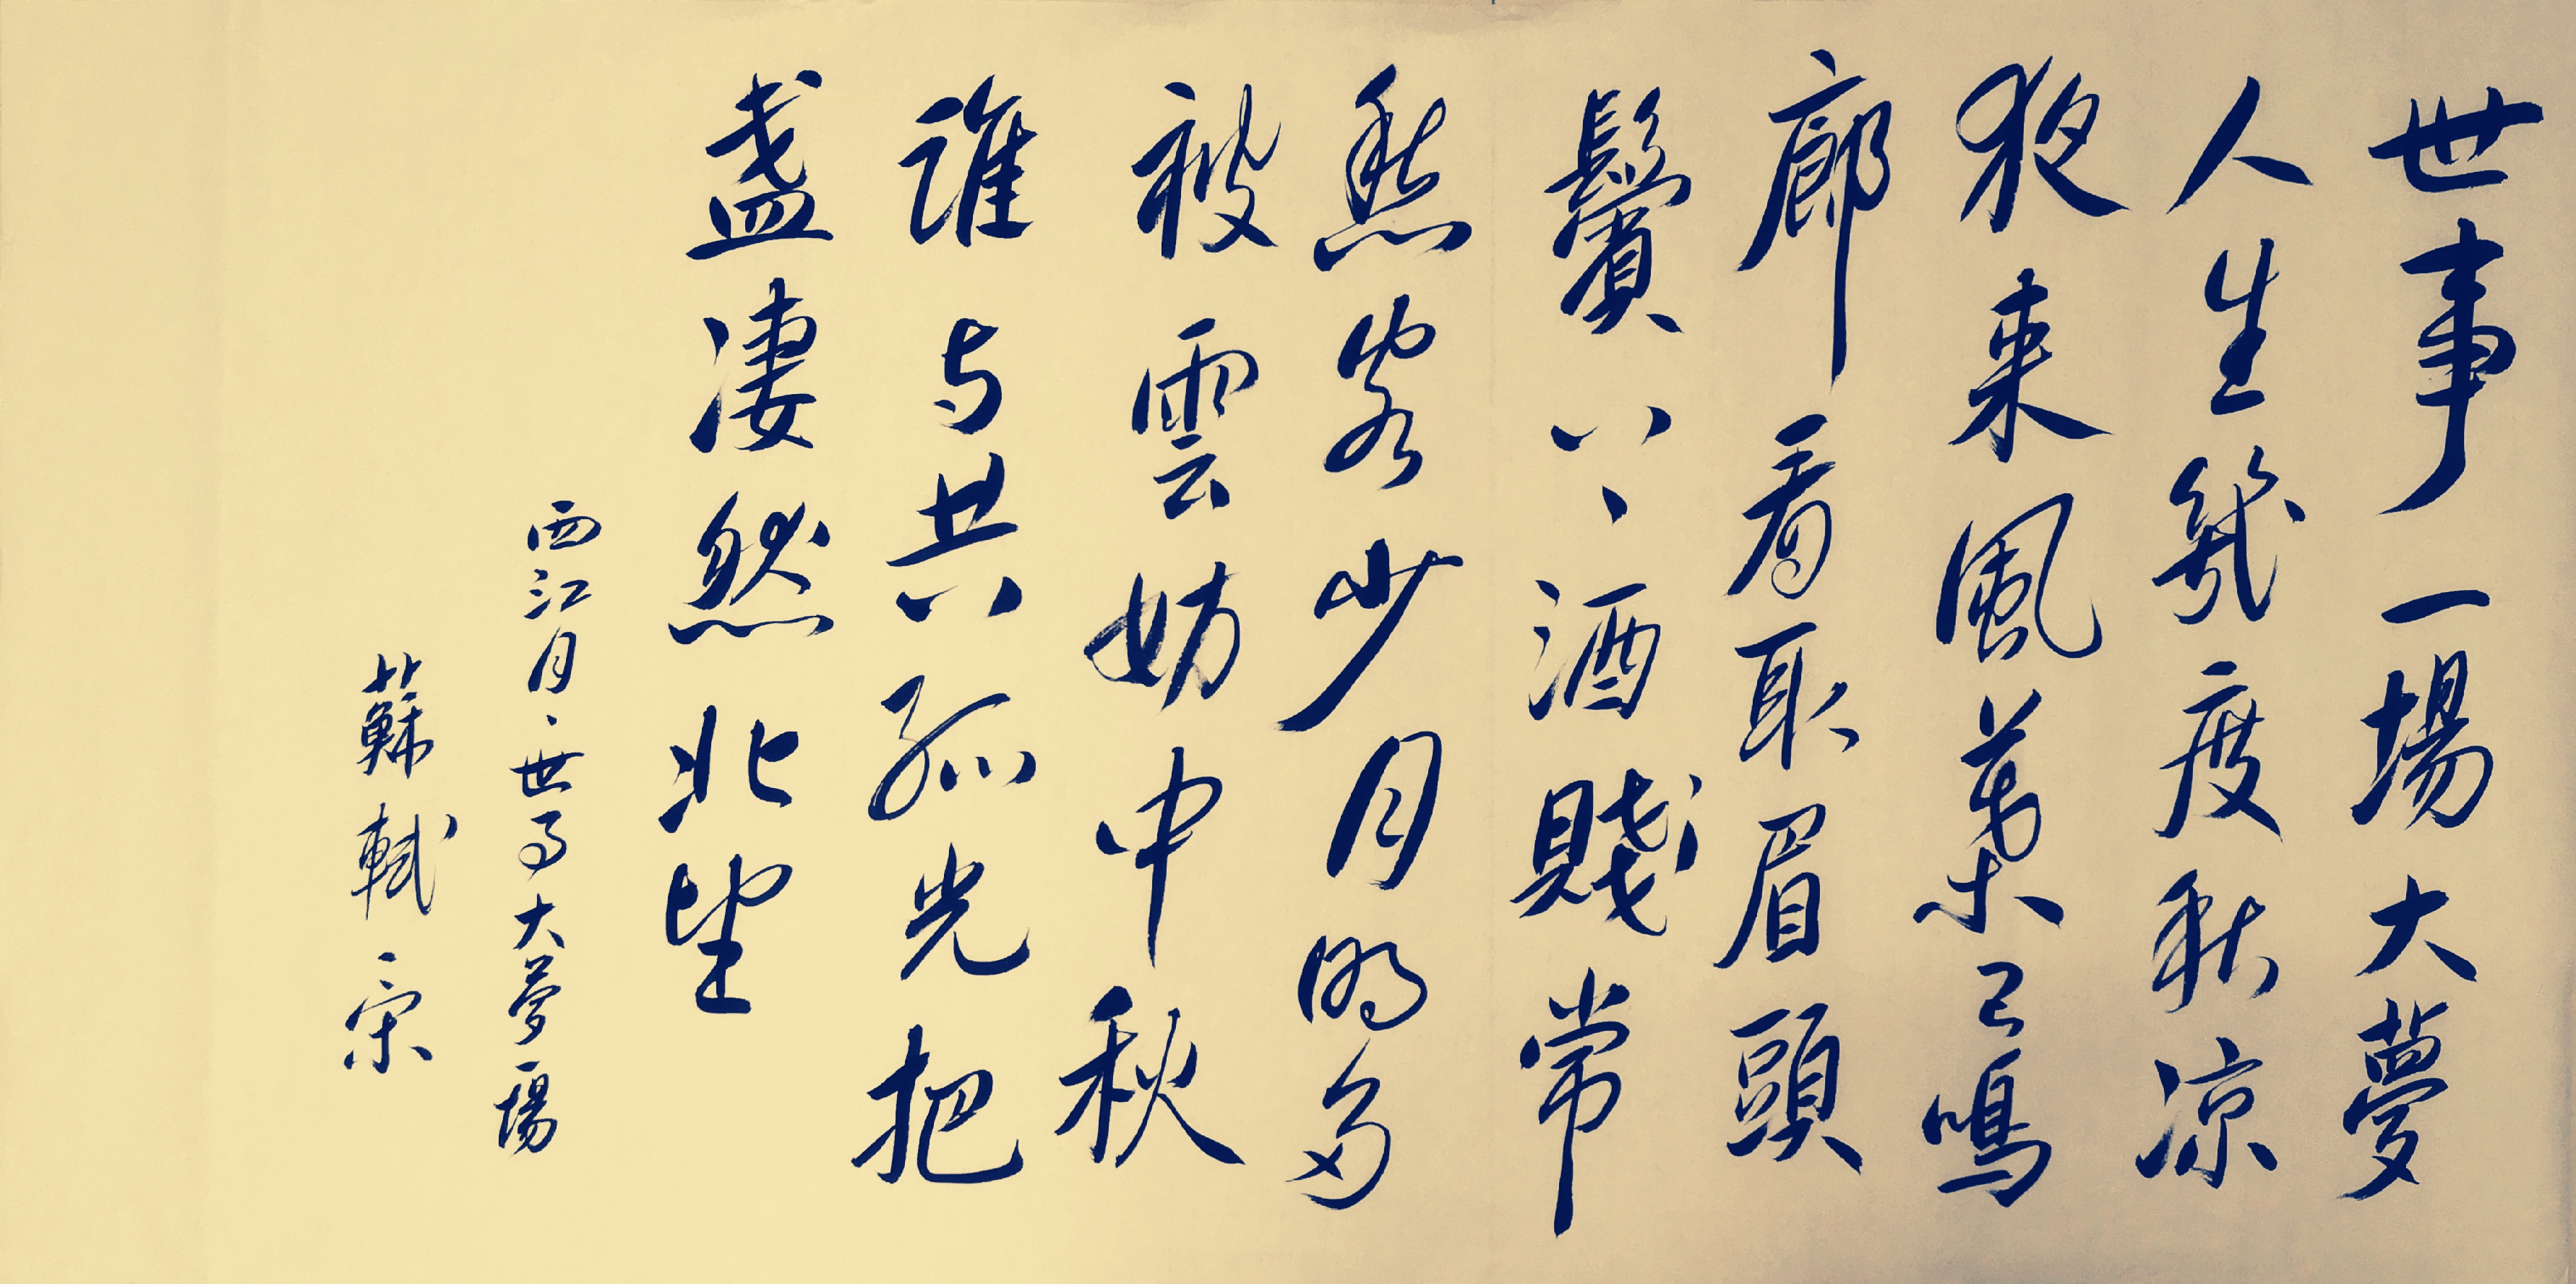 世事一場大夢
人生幾度秋凉
夜来風葉已鳴
廊看取眉頭
鬢上酒賤常
愁客少月明多
被雲妨中秋
誰与共孤光把
盞凄然北望
西江月、世事大夢一場
蘇軾宋